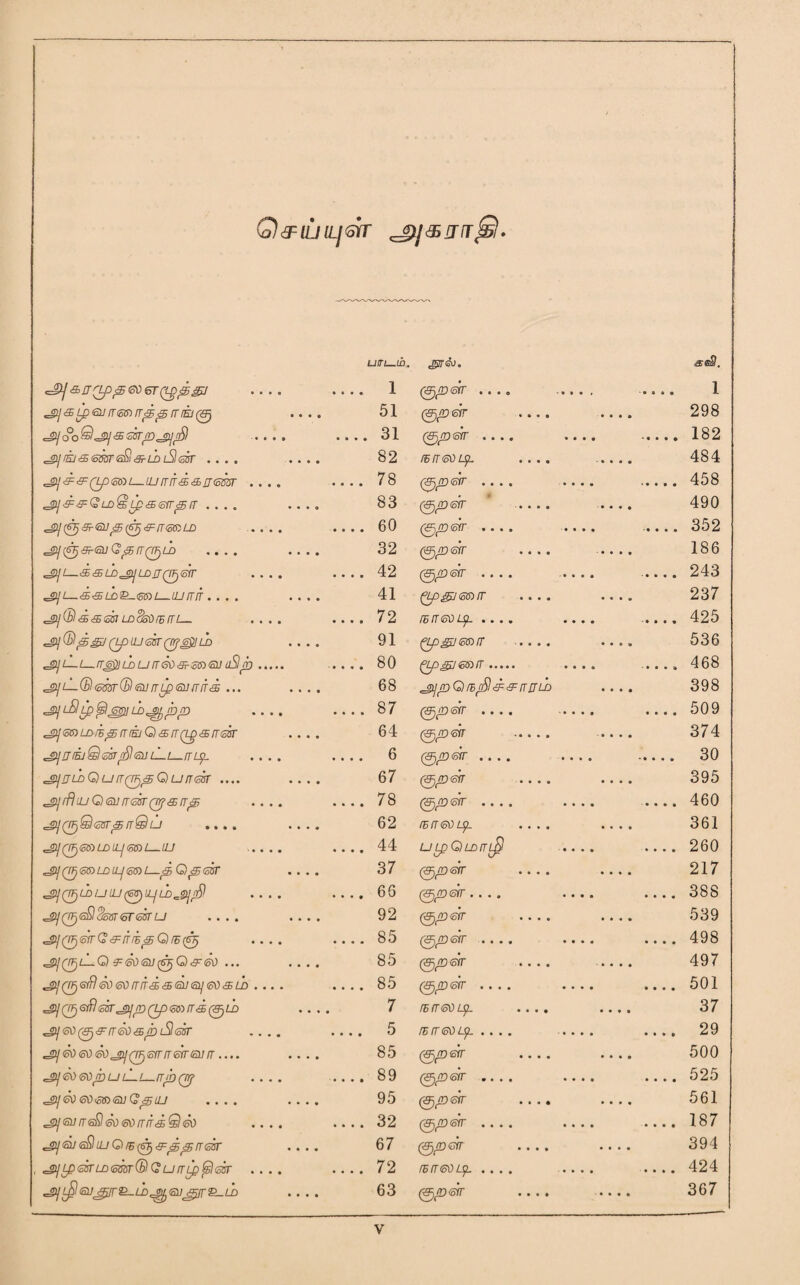 செய்யுள் அகராதி.
பாடம். நூல். கவி.
அகரமுதலஎழுத்து .... .... 1 குறள் .... .... .... 1
அகழ்வாரைத்தாங்கு .... 51 குறள் .... .... 298
அஃகிஅகன்றஅறி .... .... 31 குறள் .... .... .... 182
அங்கண்விசும்பின் .... .... 82 நாலடி .... .... 484
அச்சமுடையார்க்கரண் .... .... 78 குறள் .... .... .... 458
அச்சமேகீழ்களதா .... .... 83 குறள் .... .... 490
அஞ்சுவதஞ்சாமை .... .... 60 குறள் .... .... .... 352
அஞ்சுவதோரும் .... .... 32 குறள் .... .... 186
அடக்கம்அமரருள் .... .... 42 குறள் .... .... .... 243
அடக்கம்உடையார் .... .... 41 மூதுரை .... .... 237
அடுக்கன்மலைநாட .... .... 72 நாலடி .... .... .... 425
அடுத்துமுயன்றாலும் .... 91 மூதுரை .... .... 536
அட்டாலும்பால்சுவையிற் ..... .... 80 மூதுரை ..... .... .... 468
அட்டுண்டுவாழ்வார்க் ... .... 68 அறநெறிச்சாரம் .... 398
அமிழ்தினும்ஆற்ற .... .... 87 குறள் .... .... .... 509
அமைந்தாங்கொழுகான் .... 64 குறள் .... .... 374
அரங்கின்றிவட்டாடி .... .... 6 குறள் .... .... .... 30
அரம்பொருதபொன் .... .... 67 குறள் .... .... 395
அரியவென்றாகாத .... .... 78 குறள் .... .... .... 460
அருகினதாகிப் .... .... 62 நாலடி .... .... 361
அருமையுடைய .... .... 44 பழமொழி .... .... 260
அருமையுடைத்தென் .... 37 குறள் .... .... 217
அரும்பயனாயும்அறி .... .... 66 குறள் .... .... .... 388
அருவினைஎன்ப .... .... 92 குறள் .... .... 539
அருள்சேர்ந்தநெஞ் .... .... 85 குறள் .... .... .... 498
அருட்செல்வஞ்செல் ... .... 85 குறள் .... .... 497
அருளில்லார்க்கவ்வுலகம் .... .... 85 குறள் .... .... .... 501
அருளின்அறமுரைக்கும் .... 7 நாலடி .... .... 37
அலகுசால்கற்பின் .... .... 5 நாலடி .... .... .... 29
அல்லல்அருளாள்வா .... .... 85 குறள் .... .... 500
அல்லற்பட்டாற்றா .... .... 89 குறள் .... .... .... 525
அல்லவைதேய .... .... 95 குறள் .... .... 561
அவாவில்லார்க்கில் .... .... 32 குறள் .... .... .... 187
அவ்வியநெஞ்சத்தான் .... 67 குறள் .... .... 394
அழன்மண்டுபோழ்தின் .... .... 72 நாலடி .... .... .... 424
அழிவதூஉம்ஆவதூஉம் .... 63 குறள் .... .... 367
v